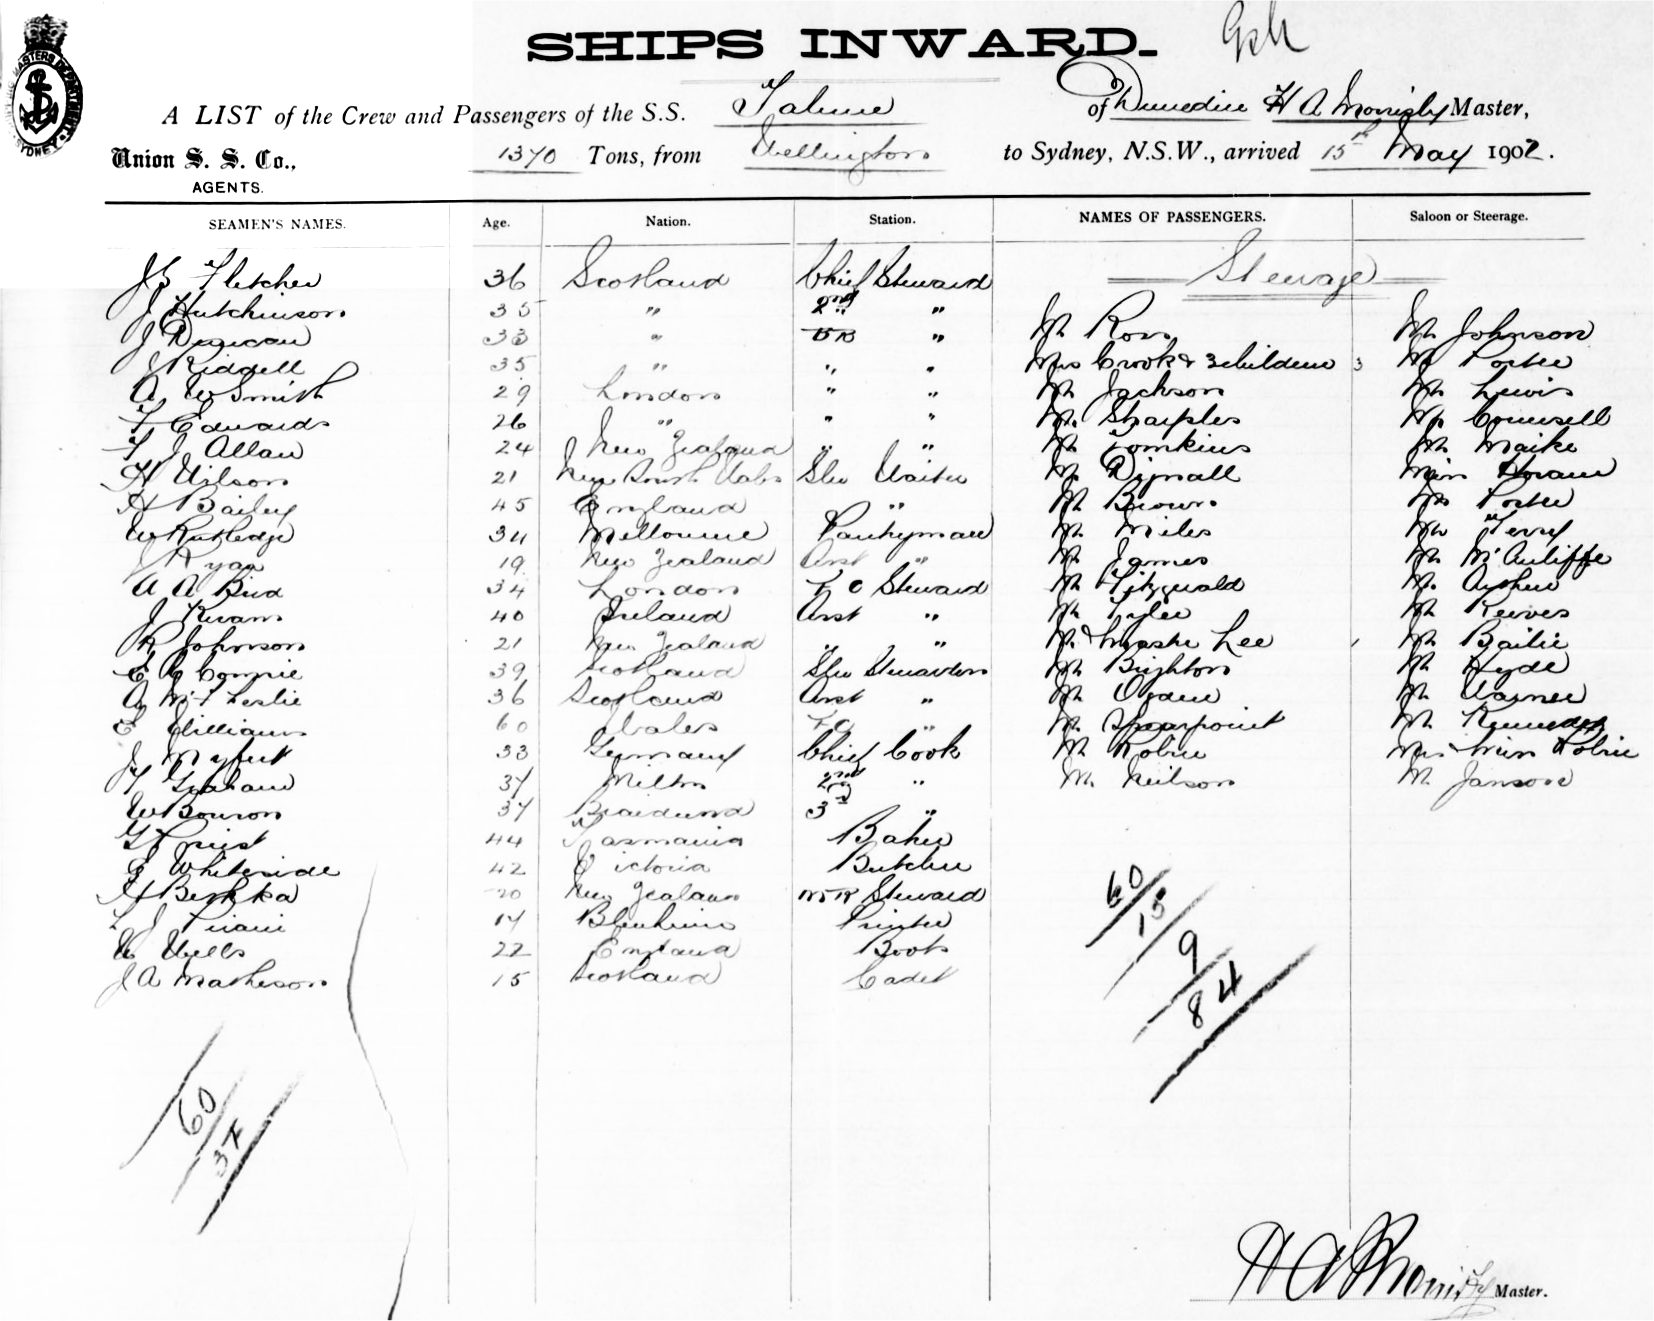 SHIPS INWARD.
A LIST of the Crew and Passengers of the S.S. Talune of Dunedin H A Master,
Union S. S. Co., 1370 Tons, from Wellington to Sydney, N.S.W., arrived 15th May 1902.
AGENTS.
SEAMEN'S NAMES. Age. Nation. Station. NAMES OF PASSENGERS. Saloon or Steerage.
Steerage
J B Fletcher 36 Scotland Chief Steward
J Hutchinson 35 " 2nd " Mr Ross Mr Johnson
J Duncan 33 " " Mrs Crook & 3 children 3 Mr Porter
J Riddell 35 " " " Mr Jackson Mr Lewis
A W Smith 29 London " " Mr Sharples Mr Counsell
T Edwards 26 " " " Mr Tomkins Mr Maike
F J Allan 24 New Zealand " " Mr Dignall Miss Doran
H Wilson 21 New South Wales Stw Waiter Mr Brown Mrs Porter
H Bailey 45 England " Mr Miles Mr Terry
W Rutledge 34 Melbourne Pantryman Mr James Mr McAuliffe
J Ryan 19 New Zealand Asst " Mr Fitzgerald Mr Arthur
A A Bird 34 London F C Steward Mr Tyler Mr Reeves
J Kirans 40 Ireland Asst " Mr & Master Lee Mr Bailie
R Johnson 21 New Zealand " " Mr Brighton Mr Hyde
E C Comrie 39 Scotland Stw Stewardess Mr Ogden Mr Warner
A McF Leslie 36 Scotland Asst " Mr Spearpoint Mr Kennedy
E Williams 60 Wales F C " Mr Robin Mrs & Miss Robin
J 33 Germany Chief Cook Mr Neilson Mr Janson
J Y Graham 37 Milton 2nd "
W Bowron 37 Braidwood 3rd "
G Priest 44 Tasmania Baker
E Whiteside 42 Victoria Butcher
H 20 New Zealand M R Steward
L J Pirani 17 Blenheim Printer
W Wells 22 England Boots
J A Matheson 15 Scotland Cadet
60
15
9
84
60
37
H A Master.